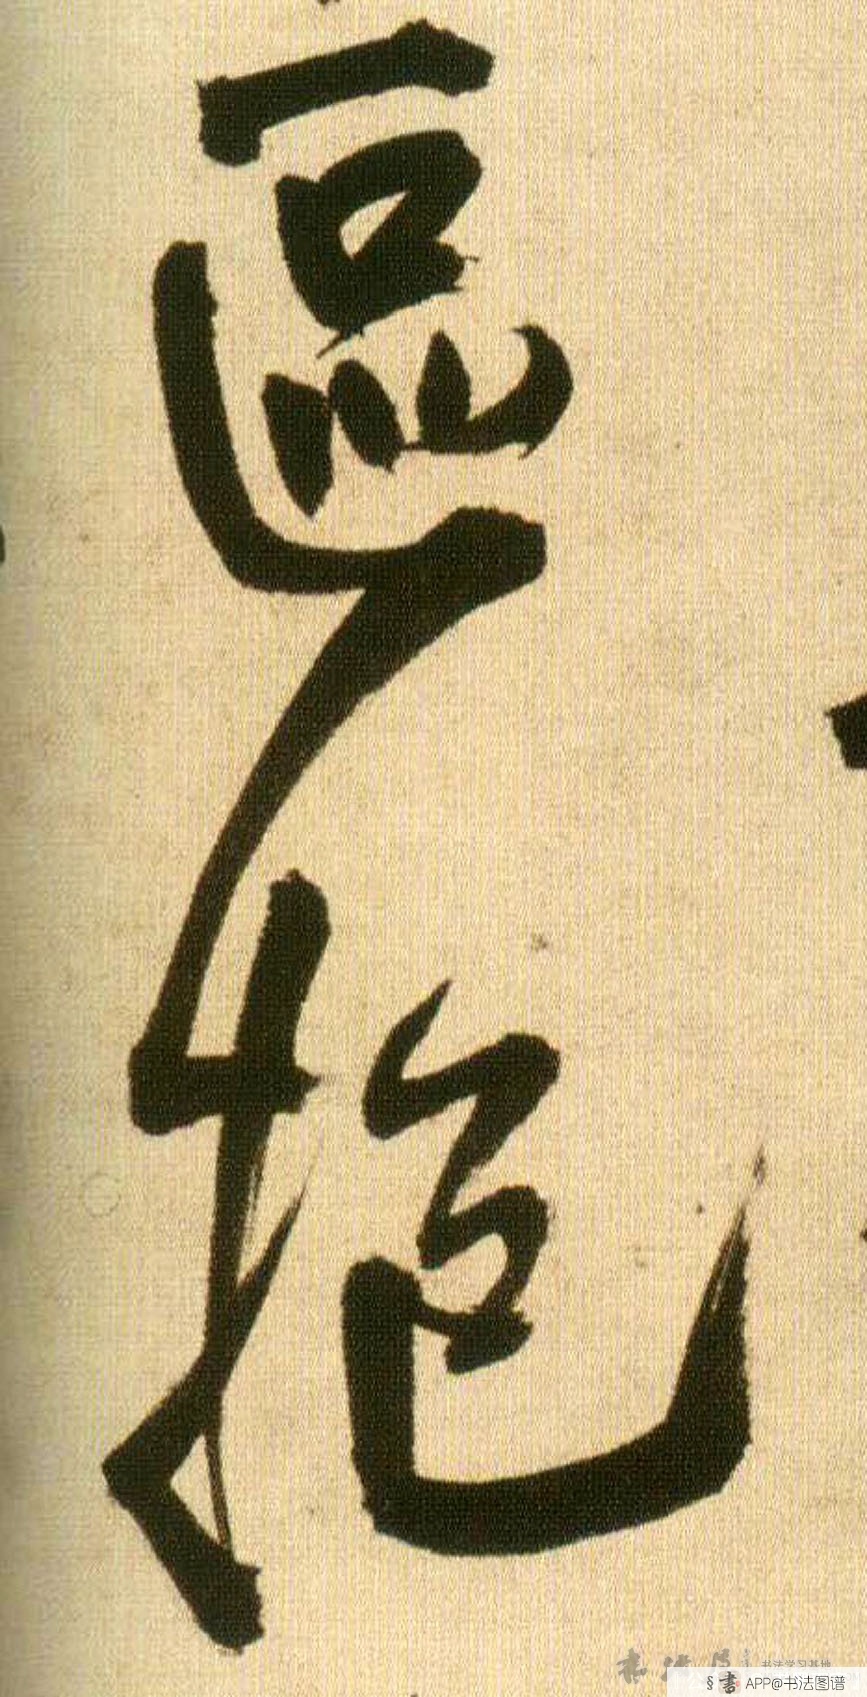 區抱
书法学习基地
§書 APP@书法图谱